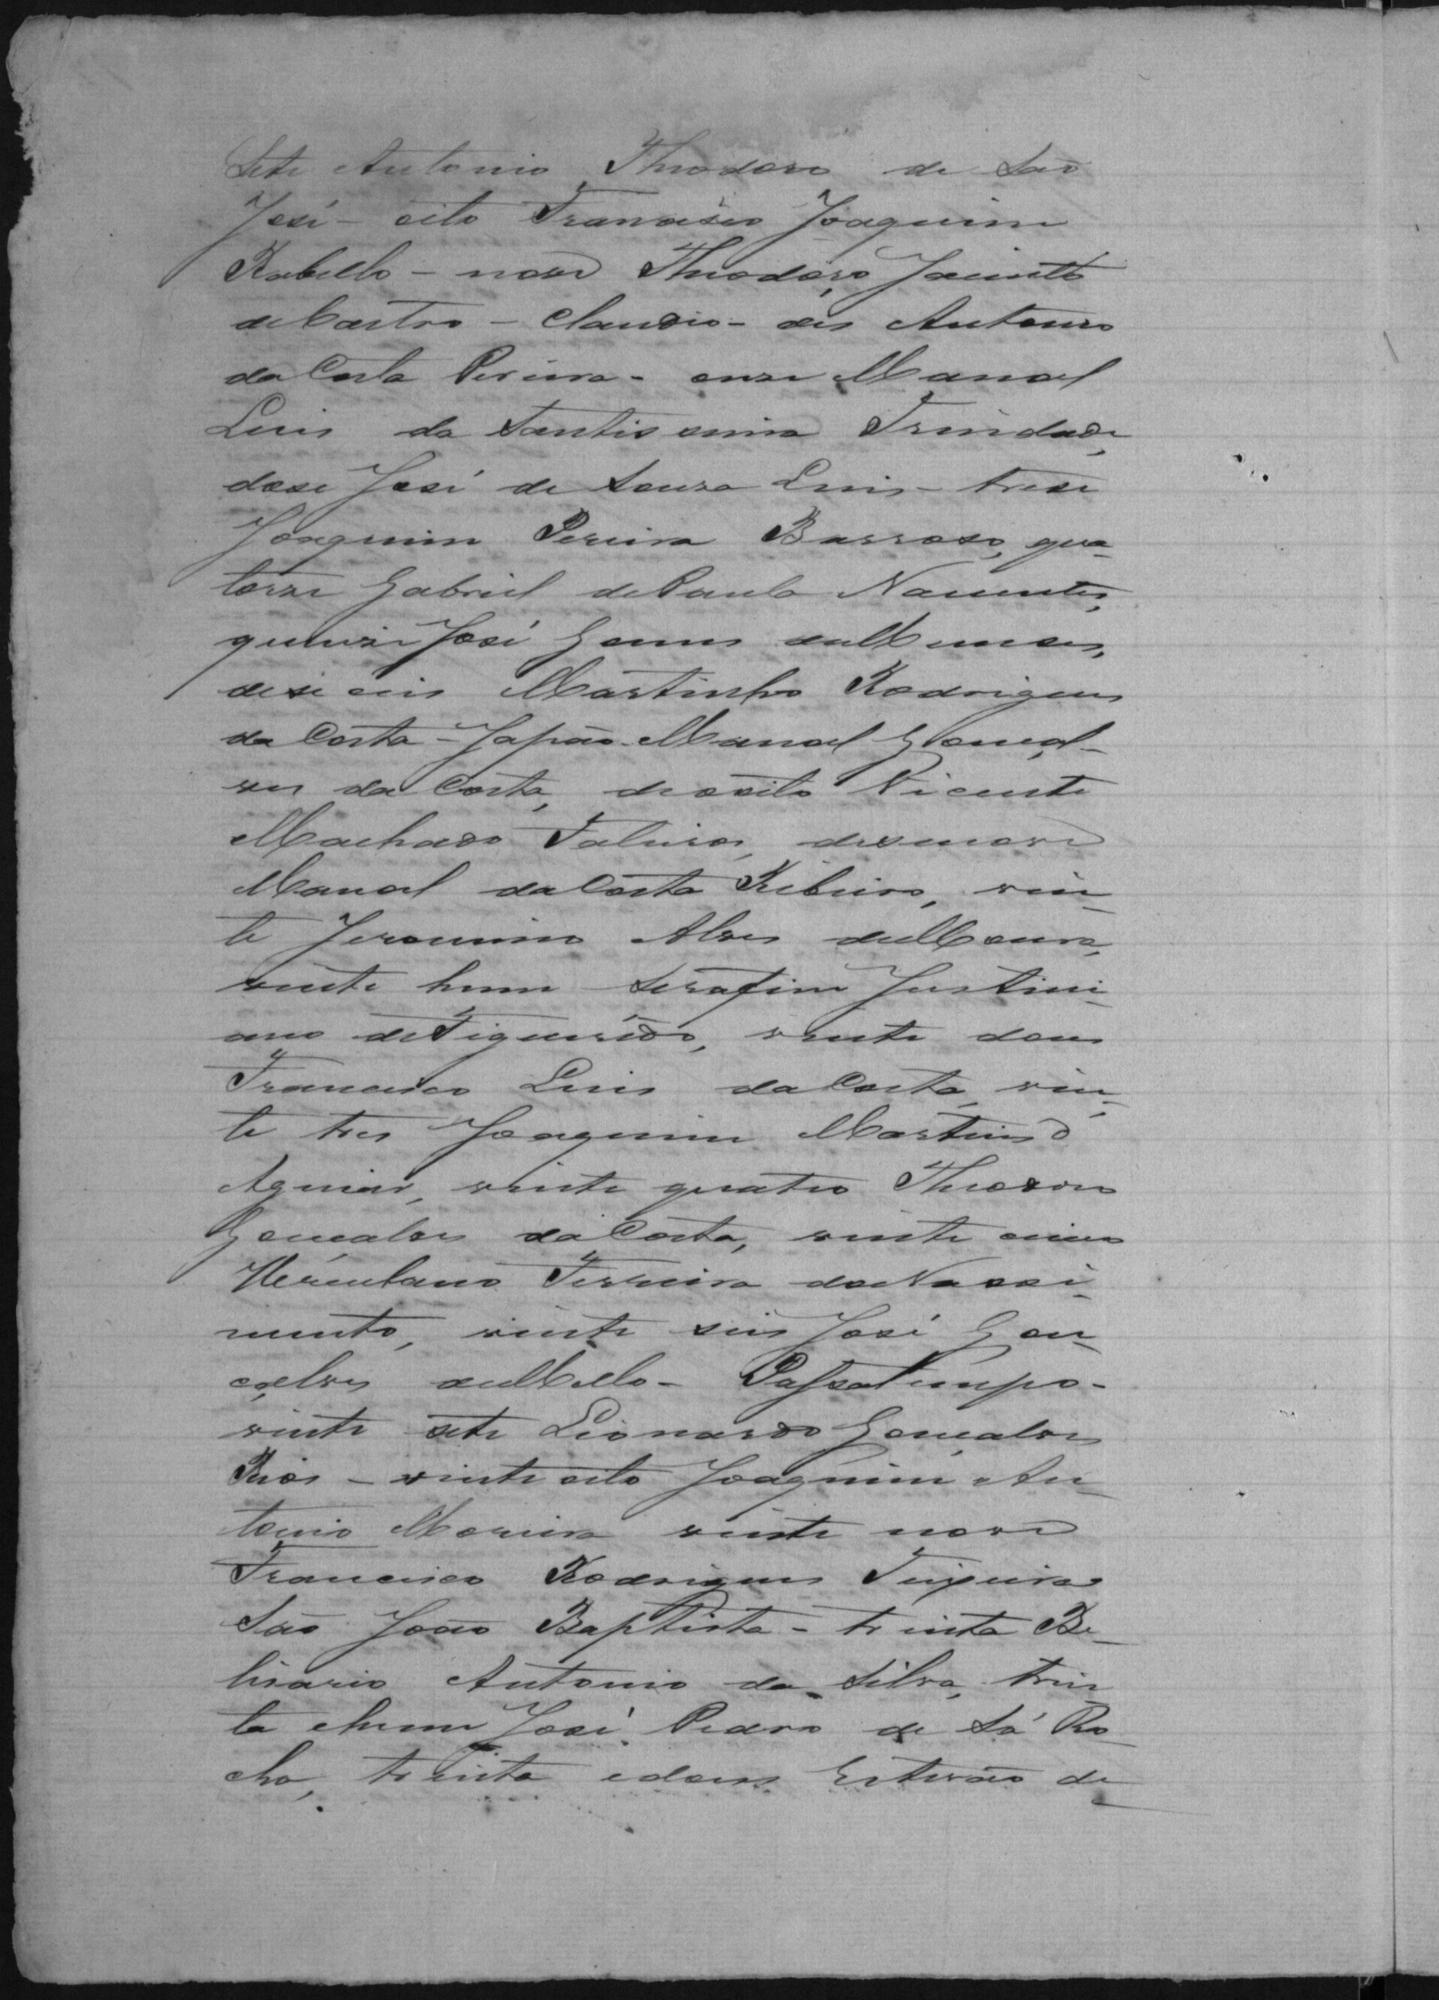 Sete Antonio Theodoro de São
José - oito Francisco Joaquim
Rabello - nove Theodoro Jacintho
de Castro - Claudio - des Antonio
da Costa Pereira - onze Manoel
Luis da Santissima Trindade,
dose José de Souza Luis - trese
Joaquim Pereira Barroso, qua-
torze Gabriel de Paula Navantes,
quinze José Gomes de Menezes,
deseseis Martinho Rodrigues
da Costa - Japão - Manoel Gonçal-
ves da Costa, desoito Vicente
Machado desenove
Manoel da Costa Ribeiro, vin-
te Jeronimo Alves de Moura,
vinte hum Serafim Justini-
ano de Figueredo, vinte dous
Francisco Luis da Costa, vin-
te tres Joaquim Martins
Aguiar, vinte quatro Theodoro
Goncalves da Costa, vinte cinco
Herculano Ferreira do Nasci-
mento, vinte seis José Gon-
çalves de Mello - Passatempo -
vinte sete Leonardo Gonçalves
Rios - vinte oito Joaquim An-
tonio Moreira vinte nove
Francisco Rodrigues Teixeira
São João Baptista - trinta Be-
lisario Antonio da Silva, trin
ta e hum José Pedro de Sá Ro-
cha, trinta e dous Estevão de